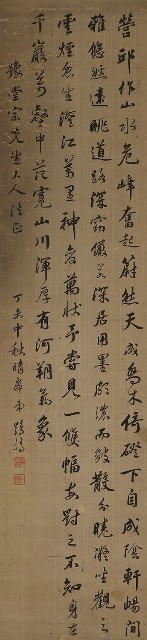 營邱作山水危峰奮起蔚然天成喬木倚磴下自成陰軒暢間
雅悠然遠眺道路深窈儼若深居用墨頗濃而皴散分曉凝坐觀之
雲煙忽生澄江萬里神萬狀予嘗見一幅每對之不知身在
千巖萬壑中范寬山川渾厚有河朔氣象
豫堂宗先生大人法正
丁未中秋晴